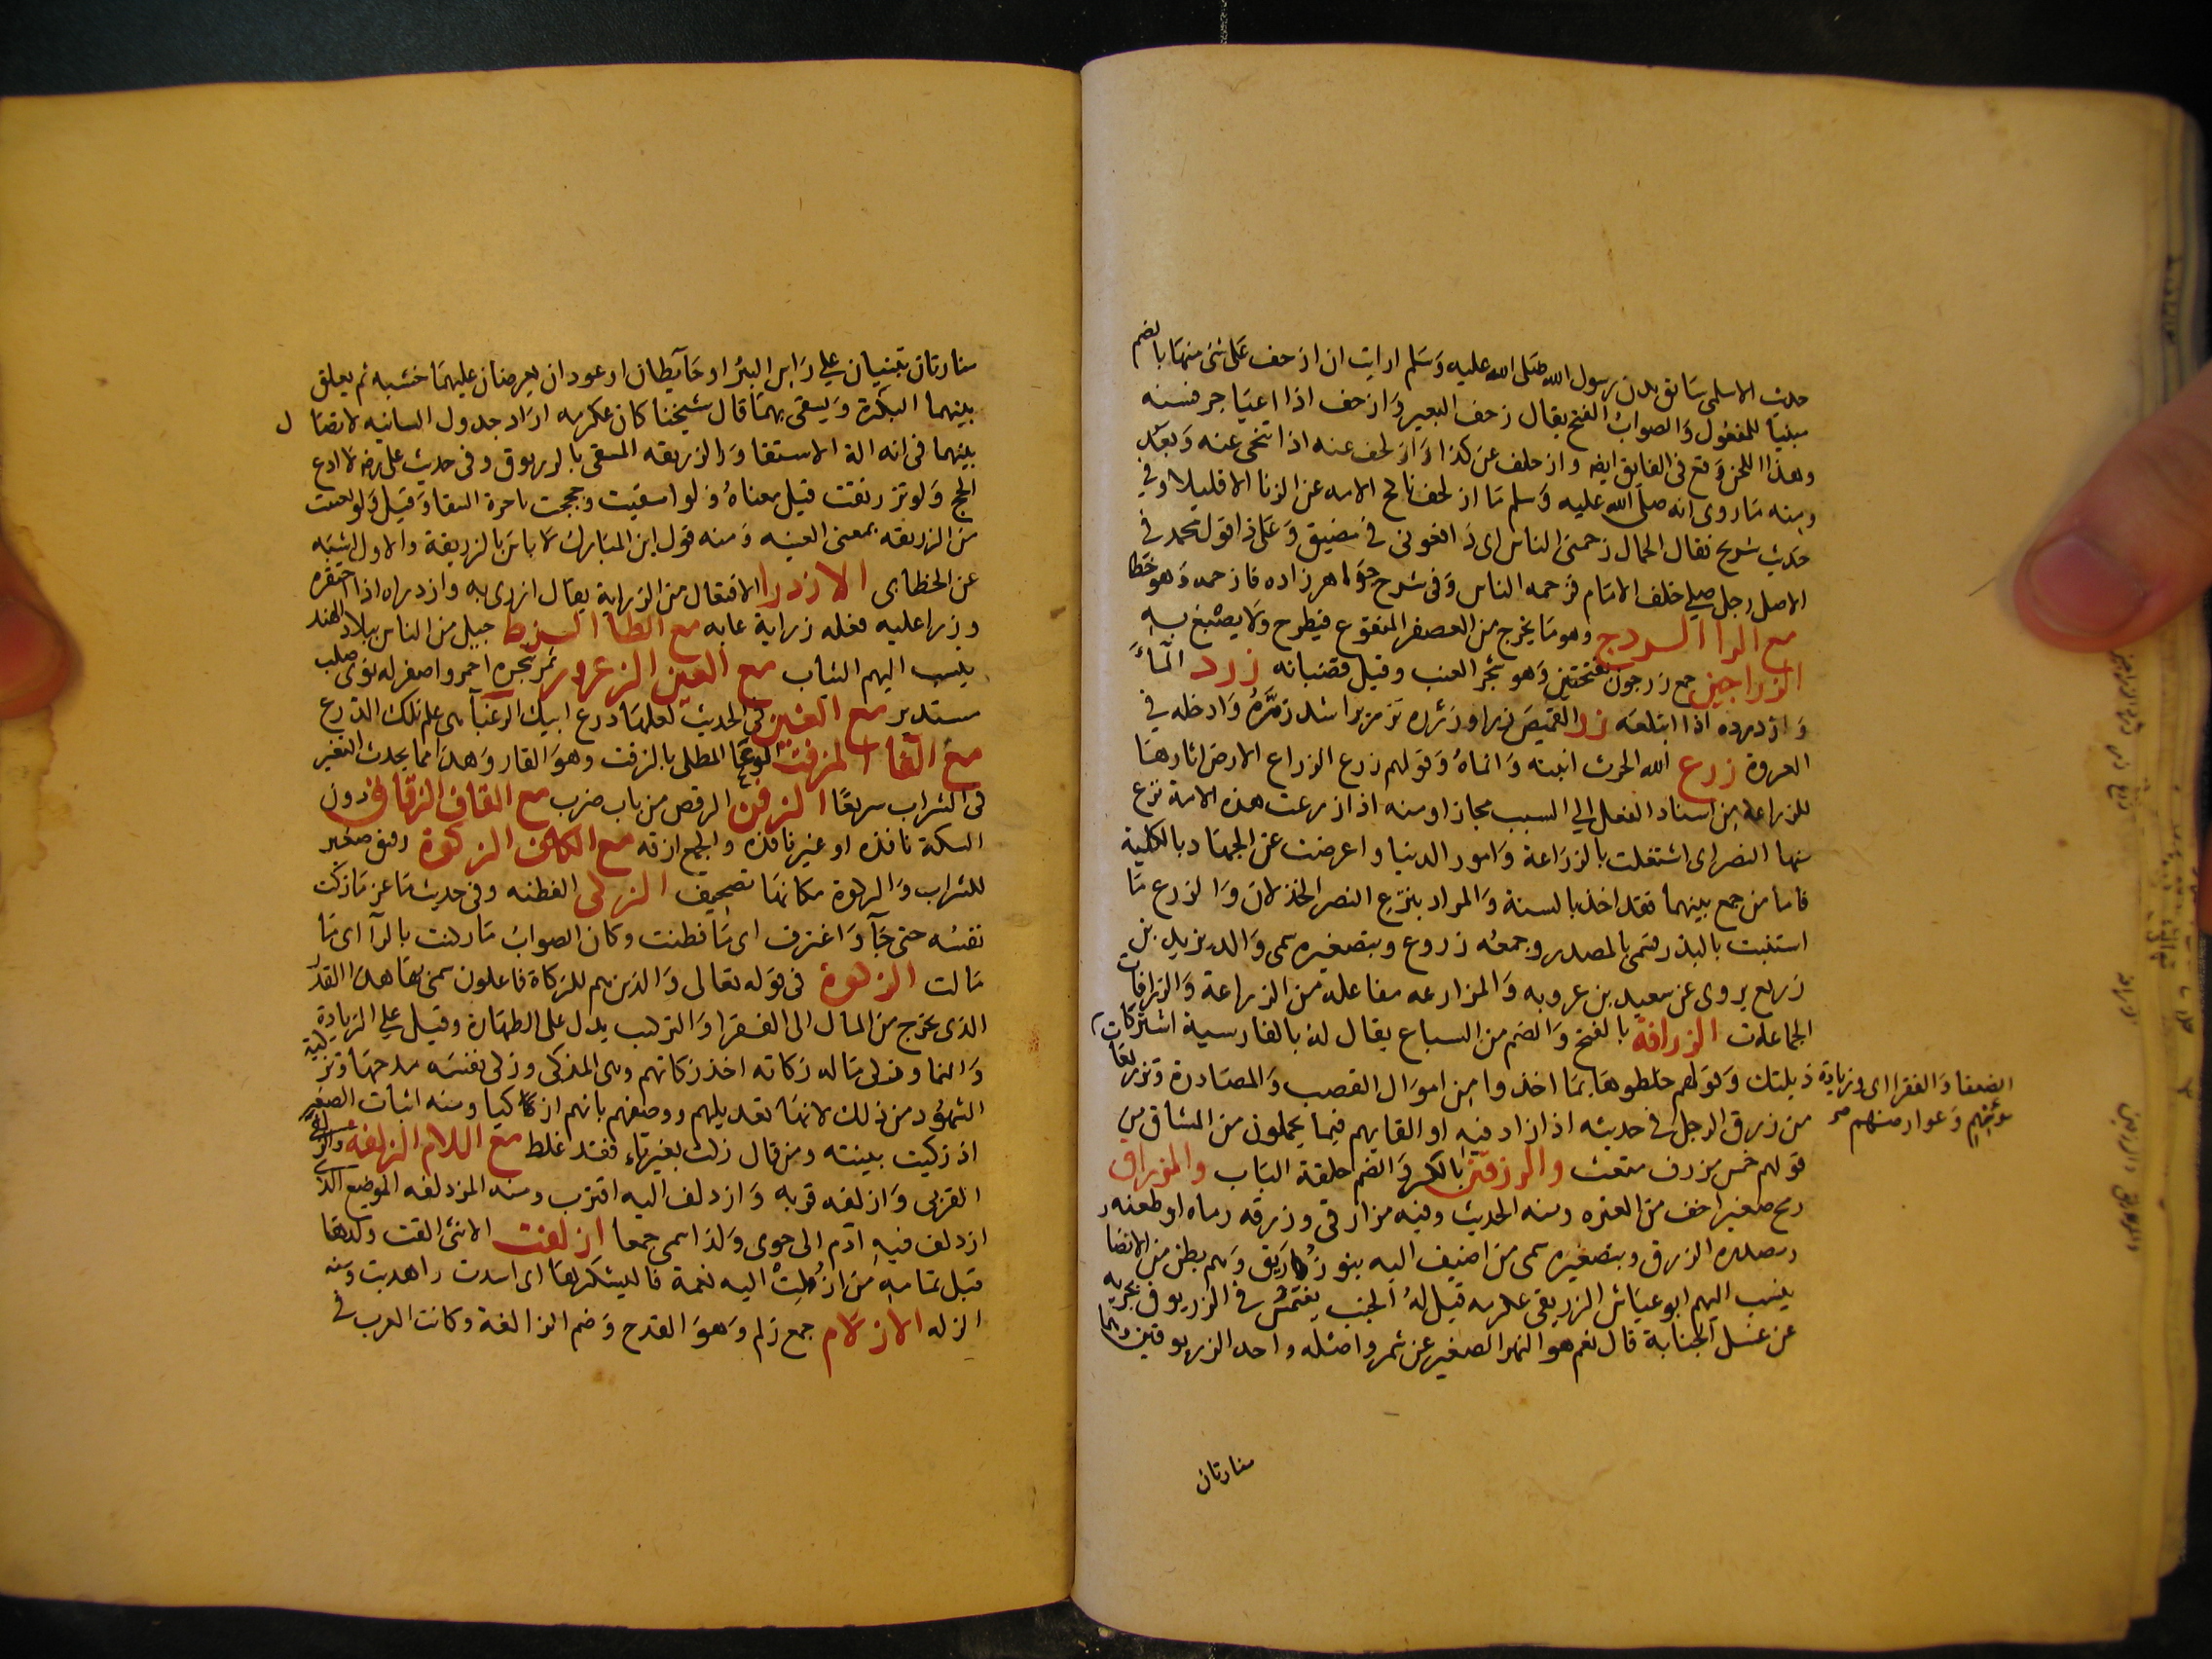 حديث الاسلمى سَائق بدن رسول الله صَلى الله عليه وَسَلم ارايت ان ازحف عَلىَّ شئ منهَا بالضم
مبنياً للمفعول وَالصوابُ الفتح يقال زحف البعير وَازحف اذا اعيَا جر فرسنه
وهذا اللحن وَقع فى الفايق ايضا وازحلف عن كذا وَازلحف عنه اذا تنحى عنه وَبَعُد
ومنه مَا روى انه صلى الله عليه وَسلم مَا ازلحف ناكح الامه عن الزنا الا قليلا وَفي
حَديث شريح فقال الحمال زحمنى الناس اى دَافعونى في مَضيق وَعَلى ذا قول محمد في
الاصل رجل صلى خلف الامَام فزحمه الناس وَفى شرح خوَاهر زاده فازحمه وَهو خطا
مع الرا الزردج وهو مَا يخرج من العصفر المنقوع فيطرح وَلا يصْبغ بهِ
الزراجين جمع زرجون بفتحتين وَهو شجر العنب وقيل قضبانه زرد المآءَ
وَازدرده اذا ابتلعَه زر القميصَ زرا وزرره تزريرا شد زرّهُ وَادخله في
العروة زرع الله الحرث انبته وَانماهُ وَقولهم زرع الزراع الارض اثارهَا
للزراعة من اسناد الفعل الى السبب مجازا ومنه اذا زرعت هذه الامة نزع
منها النصر اى اشتغلت بالزرَاعة وَامور الدنيا واعرضت عن الجهَاد بالكلية
فاما من جمع بينهما فقد اخذ بالسنة وَالمراد بنزع النصر الخذلان وَالزرع مَا
استنبت بالبذر سُمى بالمصدر وجمعُه زروع وبتصغيره سمى وَالد يزيد بن
زريع يروى عن سعيد بن عروبه وَالمزارعه مفاعله من الزراعة وَالزرافات
الجماعات الزرافة بالفتح وَالضم من السباع يقال له بالفارسية اشتركاو
الضعفا وَالفقرا اى وزيادة ذيلتك وَقولهم خلطوهَا بمَا اخذوا من اموَال الغصب وَالمصَادرة وَتزريقَات
مؤنتهم وَعوارضهم صح من زرق الرجل في حديثه اذا زاد فيه او القايهم فيما يحملون من المشاق من
قولهم خمس مزرف متعب والزرفين بالكسر وَالضم حلقة البَاب والمزراق
رمح صغير اخف من العنزه ومنه الحديث وفيه مزارقى وزرقه رماه او طعنه
ومصدره الزرق وبتصغيره سمى من اضيف اليه بنو زُرَيق وَهم بطن من الانصَار
ينسب اليهم ابو عيَاش الزريقى عكرمه قيل لهُ الجنب يغتمسُ في الزرنوق يجزيه
عن غسل الجنابة قال نعم هو النهر الصغير عن شمر واصله واحد الزرنوقين وَهما
منارتان
منارتان تبنيان على رَاس البئر او حَآيطان او عودان يعرضان عليهمَا خشبه ثم يعلق
بينهما البكرة وَيستقى بهمَا قال شيخنا كان عكرمه ارَاد جدول السانيه لاتصَال
بينهما فى انه الة الاستقا وَالزرنقه السقى بالزرنوق وفى حديث على رض لا ادع
الحج وَلو تزرنقت قيل معناهُ وَلو استقيت وحججت باجرة السقا وَقيل وَلو تعينت
من الزرنقه بمعنى العينه وَمنه قول ابن المبَارك لا باسَ بالزرنقة والاول اشبَه
عن الخطابى الازدرا الافتعال من الزراية يقال ازرى به وازدراه اذا احتقره
وزرا عليه فعله زراية عابه مع الطا الزط جيل من الناس ببلاد الهند
ينسب اليهم الثياب مع العين الزعرور ثمر شجره احمر واصفر له نوى صلب
مستدير مع الغين في الحديث لعلهَا درع ابيك الزغبآ هى علم تلك الدرع
مع الفا المزفت الوعَآ المطلى بالزفت وهوَ القار وَهذا مما يحدث التغير
فى الشراب سريعًا الزفن الرقص من باب ضرب مع القاف الزقاق دون
السكة نافذه او غير نافذه والجمع ازقه مع الكاف الزكوة زق صغير
للشراب وَالركوة مكانهَا تصحيف الزكى الفطنه وفى حديث مَاعز مَا زكت
نفسُه حتى جَآ وَاعترف اى مَا فطنت وكان الصوابُ مَا ركنت بالرآ اى مَا
مَالت الزكوة فى قوَله تعالى وَالذين هم للزكاة فاعلون سمى بهَا هذا القدر
الذى يخرج من المال الى الفقرا وَالتركيب يدل على الطهَارة وقيل على الزيادة
وَالنما وَزكى مَاله زكاته اخذ زكاتهم وهى المزكى وزكى نفسَه مدحهَا وتزكية
الشهُود من ذلك لانهَا تعديلهم ووصفهم بانهم ازكيا ومنه اثبات الصغير
اذ زكيت بينته ومن قال زكت بغير يَاء فقد غلط مع اللام الزلفة والزلفى
القربى وَازلفه قربه وَازدلف اليه اقترب ومنه المزدلفه الموضع الذى
ازدلف فيه آدم الى حوى وَلذا سمى جمعا ازلفت الانثى القت ولدها
قبل تمامه منَ ازُلّتْ اليه نعمة فاليشكرهَا اى اسديت واهديت ومنه
الزله الازلام جمع زلم وَهوَ القدح وَضم الزا لغة وكانت العرب في